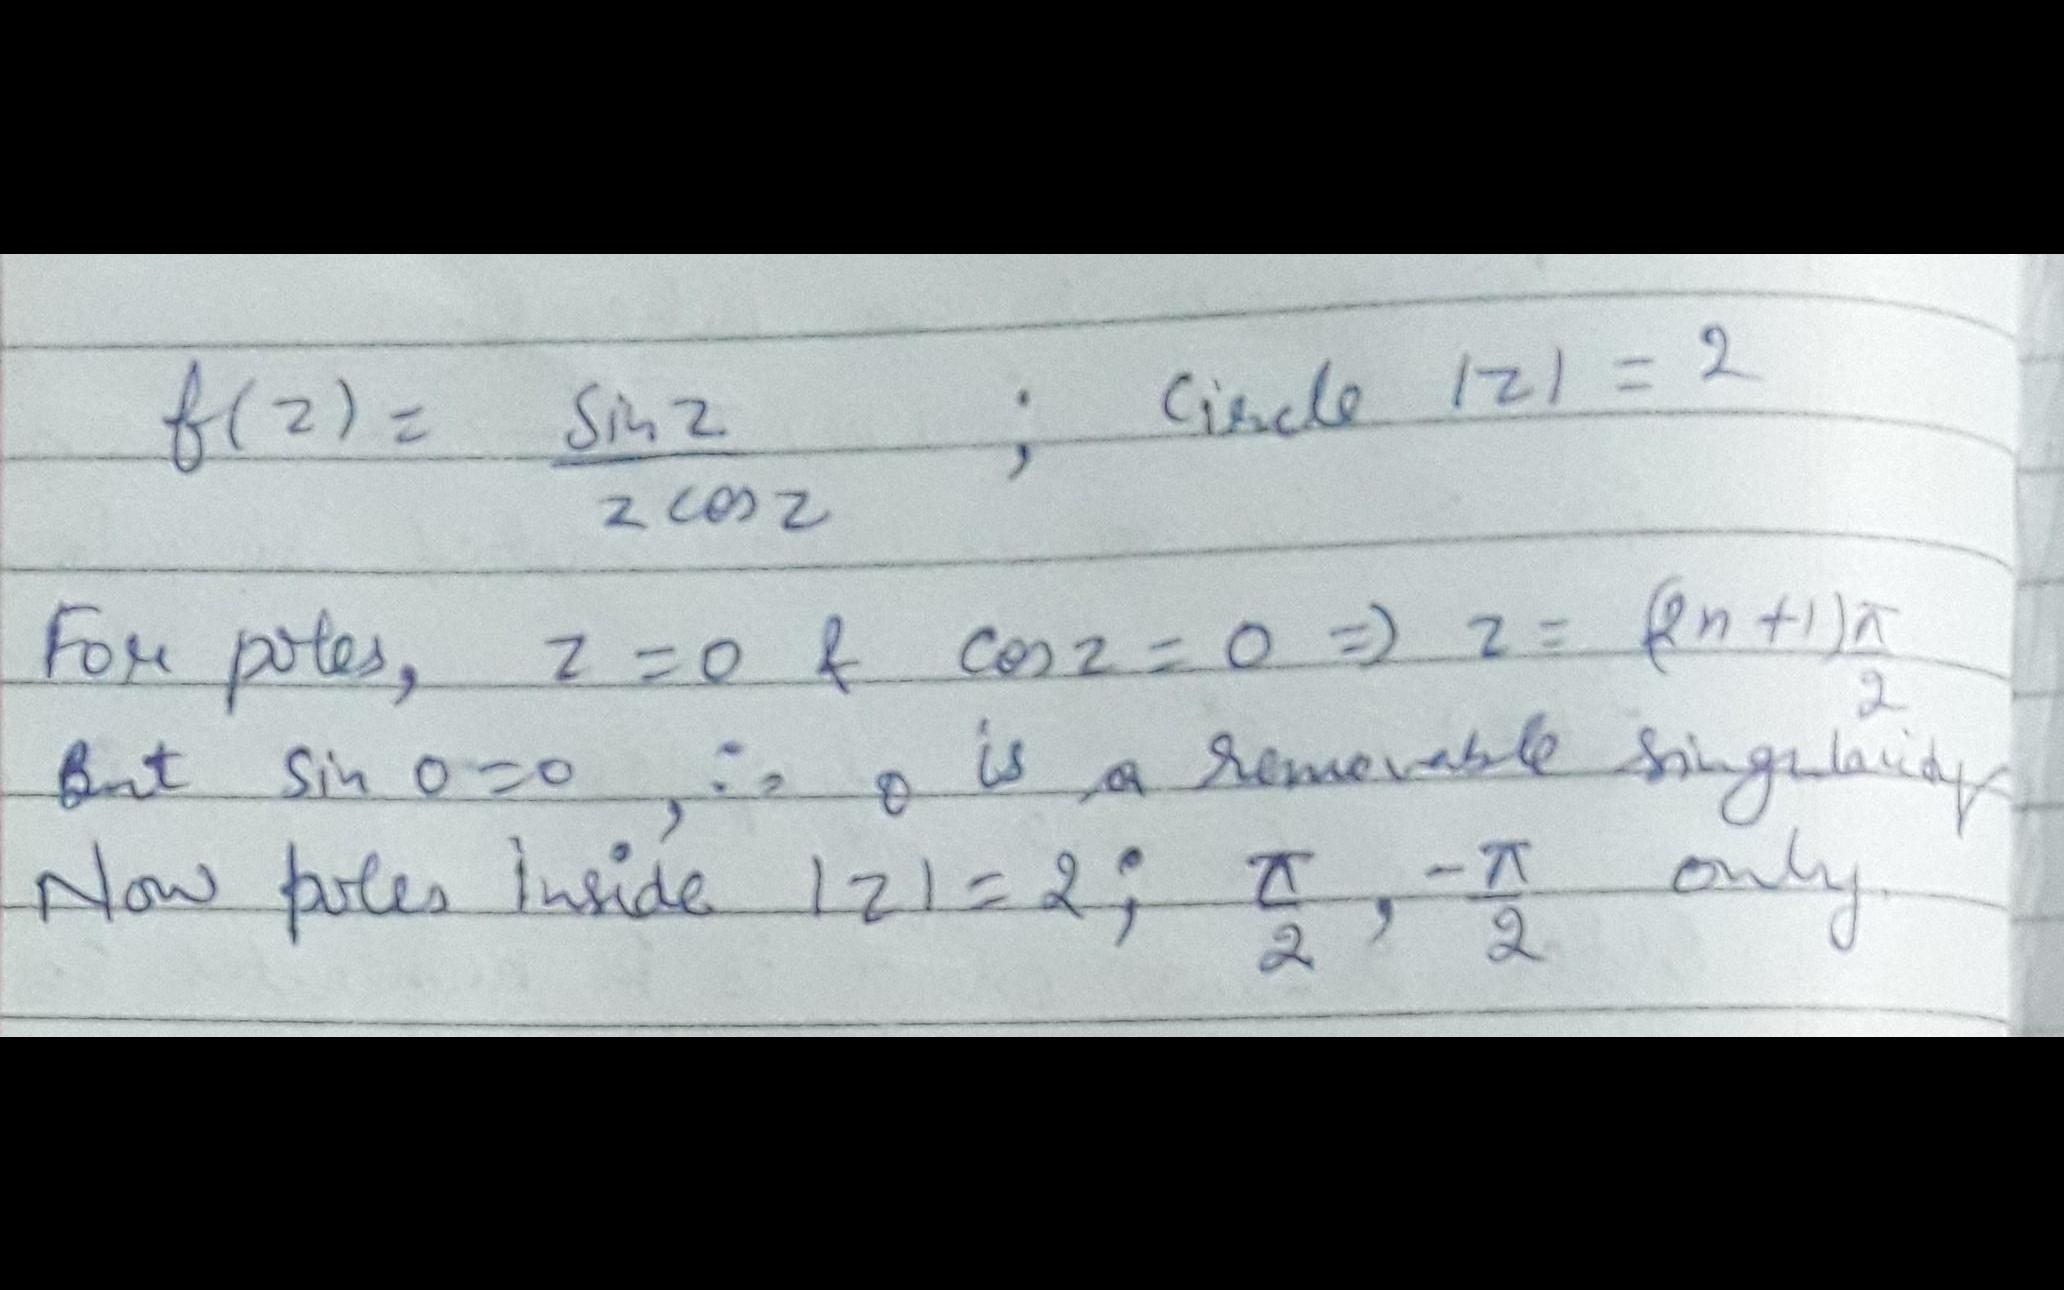 f(z) = sin z / z cos z ; Circle |z| = 2
For poles, z = 0 & cos z = 0 => z = (2n+1)π/2
But sin 0 = 0, ∴ 0 is a removable singularity
Now poles inside |z| = 2; π/2, -π/2 only.